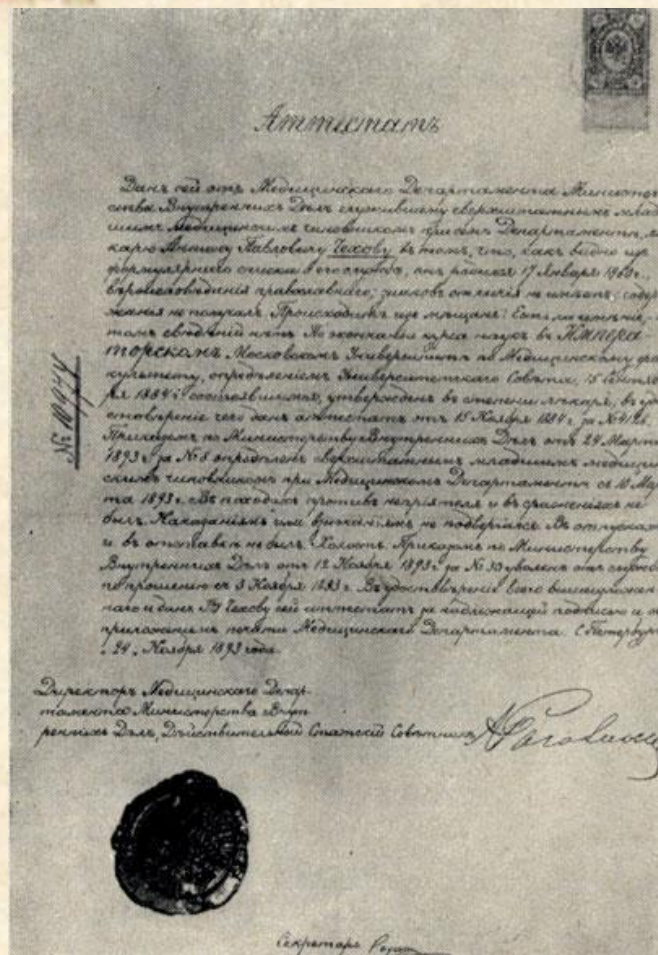 Аттестатъ
Данъ сей отъ Медицинскаго Департамента Министер-
ства Внутреннихъ Дѣлъ служившему сверхштатнымъ млад-
шимъ Медицинскимъ чиновникомъ при семъ Департаментѣ, лѣ-
карю Антону Павловичу Чехову въ томъ, что, какъ видно изъ
формулярнаго списка о его службѣ, онъ родился 17 Января 1860 г.,
вѣроисповѣданія православнаго; знаковъ отличія не имѣетъ; содер-
жанія не получалъ. Происходитъ изъ мѣщанъ. Есть ли имѣніе,
томъ свѣдѣній нѣтъ. По окончаніи курса наукъ въ ИМПЕРА-
ТОРСКОМЪ Московскомъ Университетѣ по Медицинскому фа-
культету, опредѣленіемъ Университетскаго Совѣта, 15 Сентяб-
ря 1884 г. состоявшимся, утвержденъ въ степени лѣкаря, въ удо-
стовѣреніе чего данъ аттестатъ отъ 15 Ноября 1884 г. за № 4126.
Приказомъ по Министерству Внутреннихъ Дѣлъ отъ 24 Марта
1893 г. за № 8 опредѣленъ сверхштатнымъ младшимъ медицин-
скимъ чиновникомъ при Медицинскомъ Департаментѣ съ 10 Мар-
та 1893 г. Въ походахъ противъ непріятеля и въ сраженіяхъ не
былъ. Наказаніямъ или взысканіямъ не подвергался. Въ отпускахъ
и въ отставкѣ не былъ. Холостъ. Приказомъ по Министерству
Внутреннихъ Дѣлъ отъ 12 Ноября 1893 г. за № 33 уволенъ отъ службы
по прошенію съ 3 Ноября 1893 г. Въ удостовѣреніе всего вышеизложен-
наго и данъ Чехову сей аттестатъ за надлежащей подписью и съ
приложеніемъ печати Медицинскаго Департамента. С. Петербургъ
"24" Ноября 1893 года.
№ 10974
Директоръ Медицинскаго Депар-
тамента Министерства Внут-
реннихъ Дѣлъ, Дѣйствительный Статскій Совѣтникъ
Секретарь